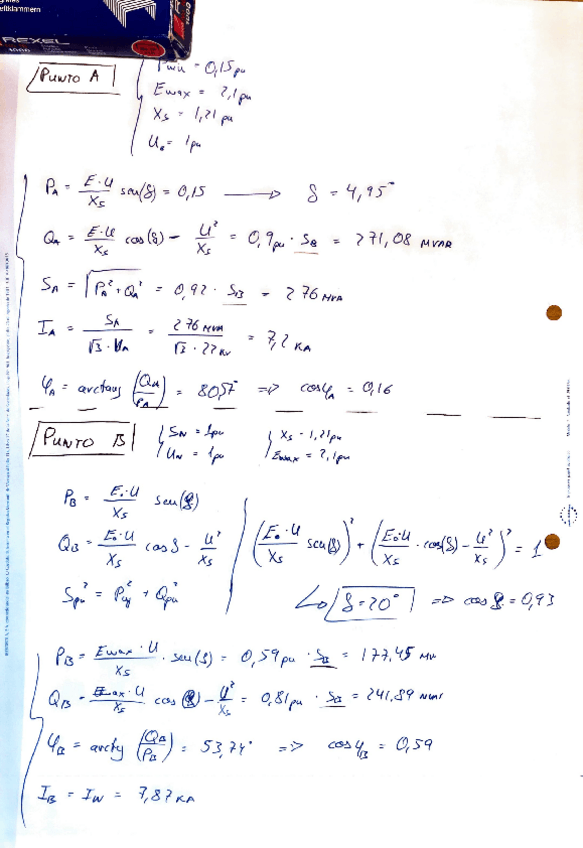 eftklammern
REXEL
PUNTO A
Pmin = 0,15 pu
Emax = 2,1 pu
Xs = 1,21 pu
Ue = 1 pu
PA = E·U/Xs sen(δ) = 0,15 → δ = 4,95°
QA = E·U/Xs cos(δ) - U²/Xs = 0,9 pu · SB = 271,08 MVAR
SA = √(PA² + QA²) = 0,92 · SB = 276 MVA
IA = SA/(√3 · UA) = 276 MVA/(√3 · 22 kV) = 7,2 KA
φA = arctang (QA/PA) = 80,57° => cosφA = 0,16
PUNTO B
SN = 1 pu
UN = 1 pu
Xs = 1,21 pu
Emax = 2,1 pu
PB = Eo·U/Xs sen(δ)
QB = Eo·U/Xs cosδ - U²/Xs
Spu² = Ppu² + Qpu²
(Eo·U/Xs sen(δ))² + (Eo·U/Xs · cos(δ) - U²/Xs)² = 1
↳ δ = 20° => cos δ = 0,93
PB = Emax · U/Xs · sen(δ) = 0,59 pu · SB = 177,45 MW
QB = Emax · U/Xs cos(δ) - U²/Xs = 0,81 pu · SB = 241,89 MVAR
φB = arctg (QB/PB) = 53,74° => cosφB = 0,59
IB = IN = 7,87 KA